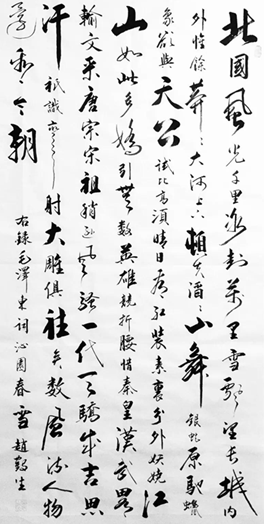 北國風光千里冰封萬里雪飄望長城内
外惟餘莽々大河上下頓失滔々山舞銀蛇原馳蠟
象欲與天公試比高須晴日看紅裝素裹分外妖嬈江
山如此多嬌引無數英雄競折腰惜秦皇漢武略
輸文采唐宗宋祖稍遜風騷一代天驕成吉思
汗祇識彎弓射大雕俱往矣數風流人物
還看今朝
右錄毛澤東詞沁園春雪